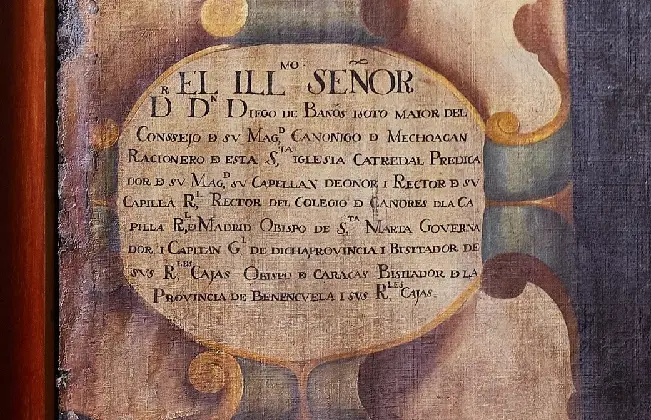 EL ILL.MO SEÑOR
D.R D.N DIEGO DE BAÑOS ISOTO MAIOR DEL
CONSSEJO D SV MAG.D CANONIGO D MECHOACAN
RACIONERO D ESTA S.TA IGLESIA CATREDAL PREDICA
DOR D SV MAG.D SV CAPELLAN DEONOR I RECTOR D SU
CAPILLA R.L RECTOR DEL COLEGIO D CANORES DLA CA
PILLA R.L D MADRID OBISPO DE S.TA MARTA GOVERNA
DOR I CAPITAN G.L DE DICHA PROVINCIA I BISITADOR DE
SVS R.LES CAJAS OBISPO D CARACAS BISITADOR D LA
PROVINCIA DE BENENCUELA I SUS R.LES CAJAS.